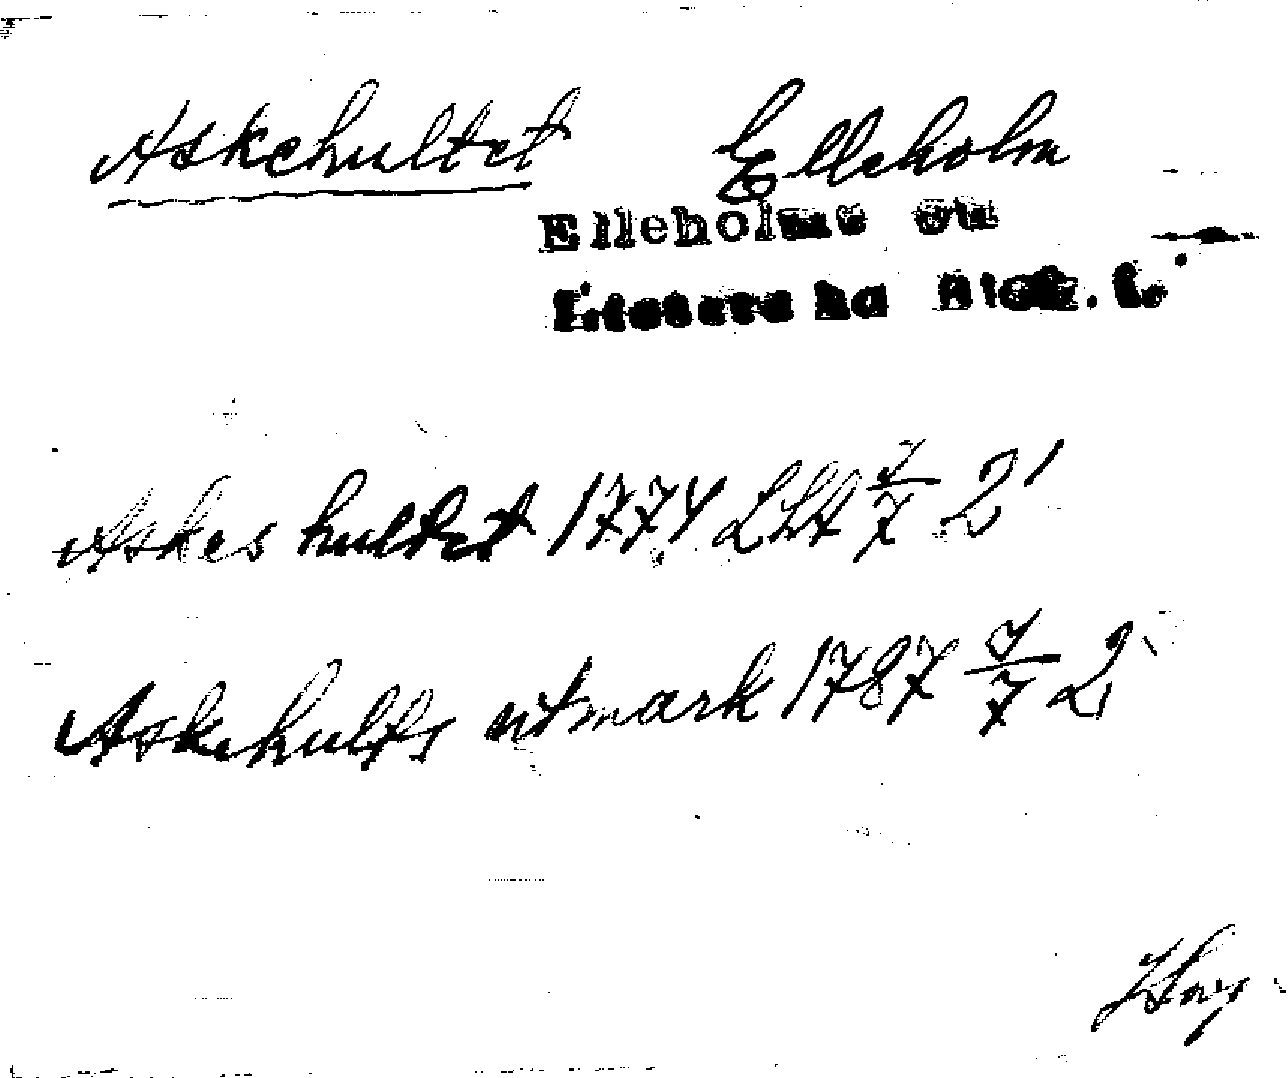 Askehultet Elleholm
Elleholms sn
Listers hd Blek. l.
Askes hultet 1774 LHA 7/7 2'
Askehults utmark 1787 7/7 2